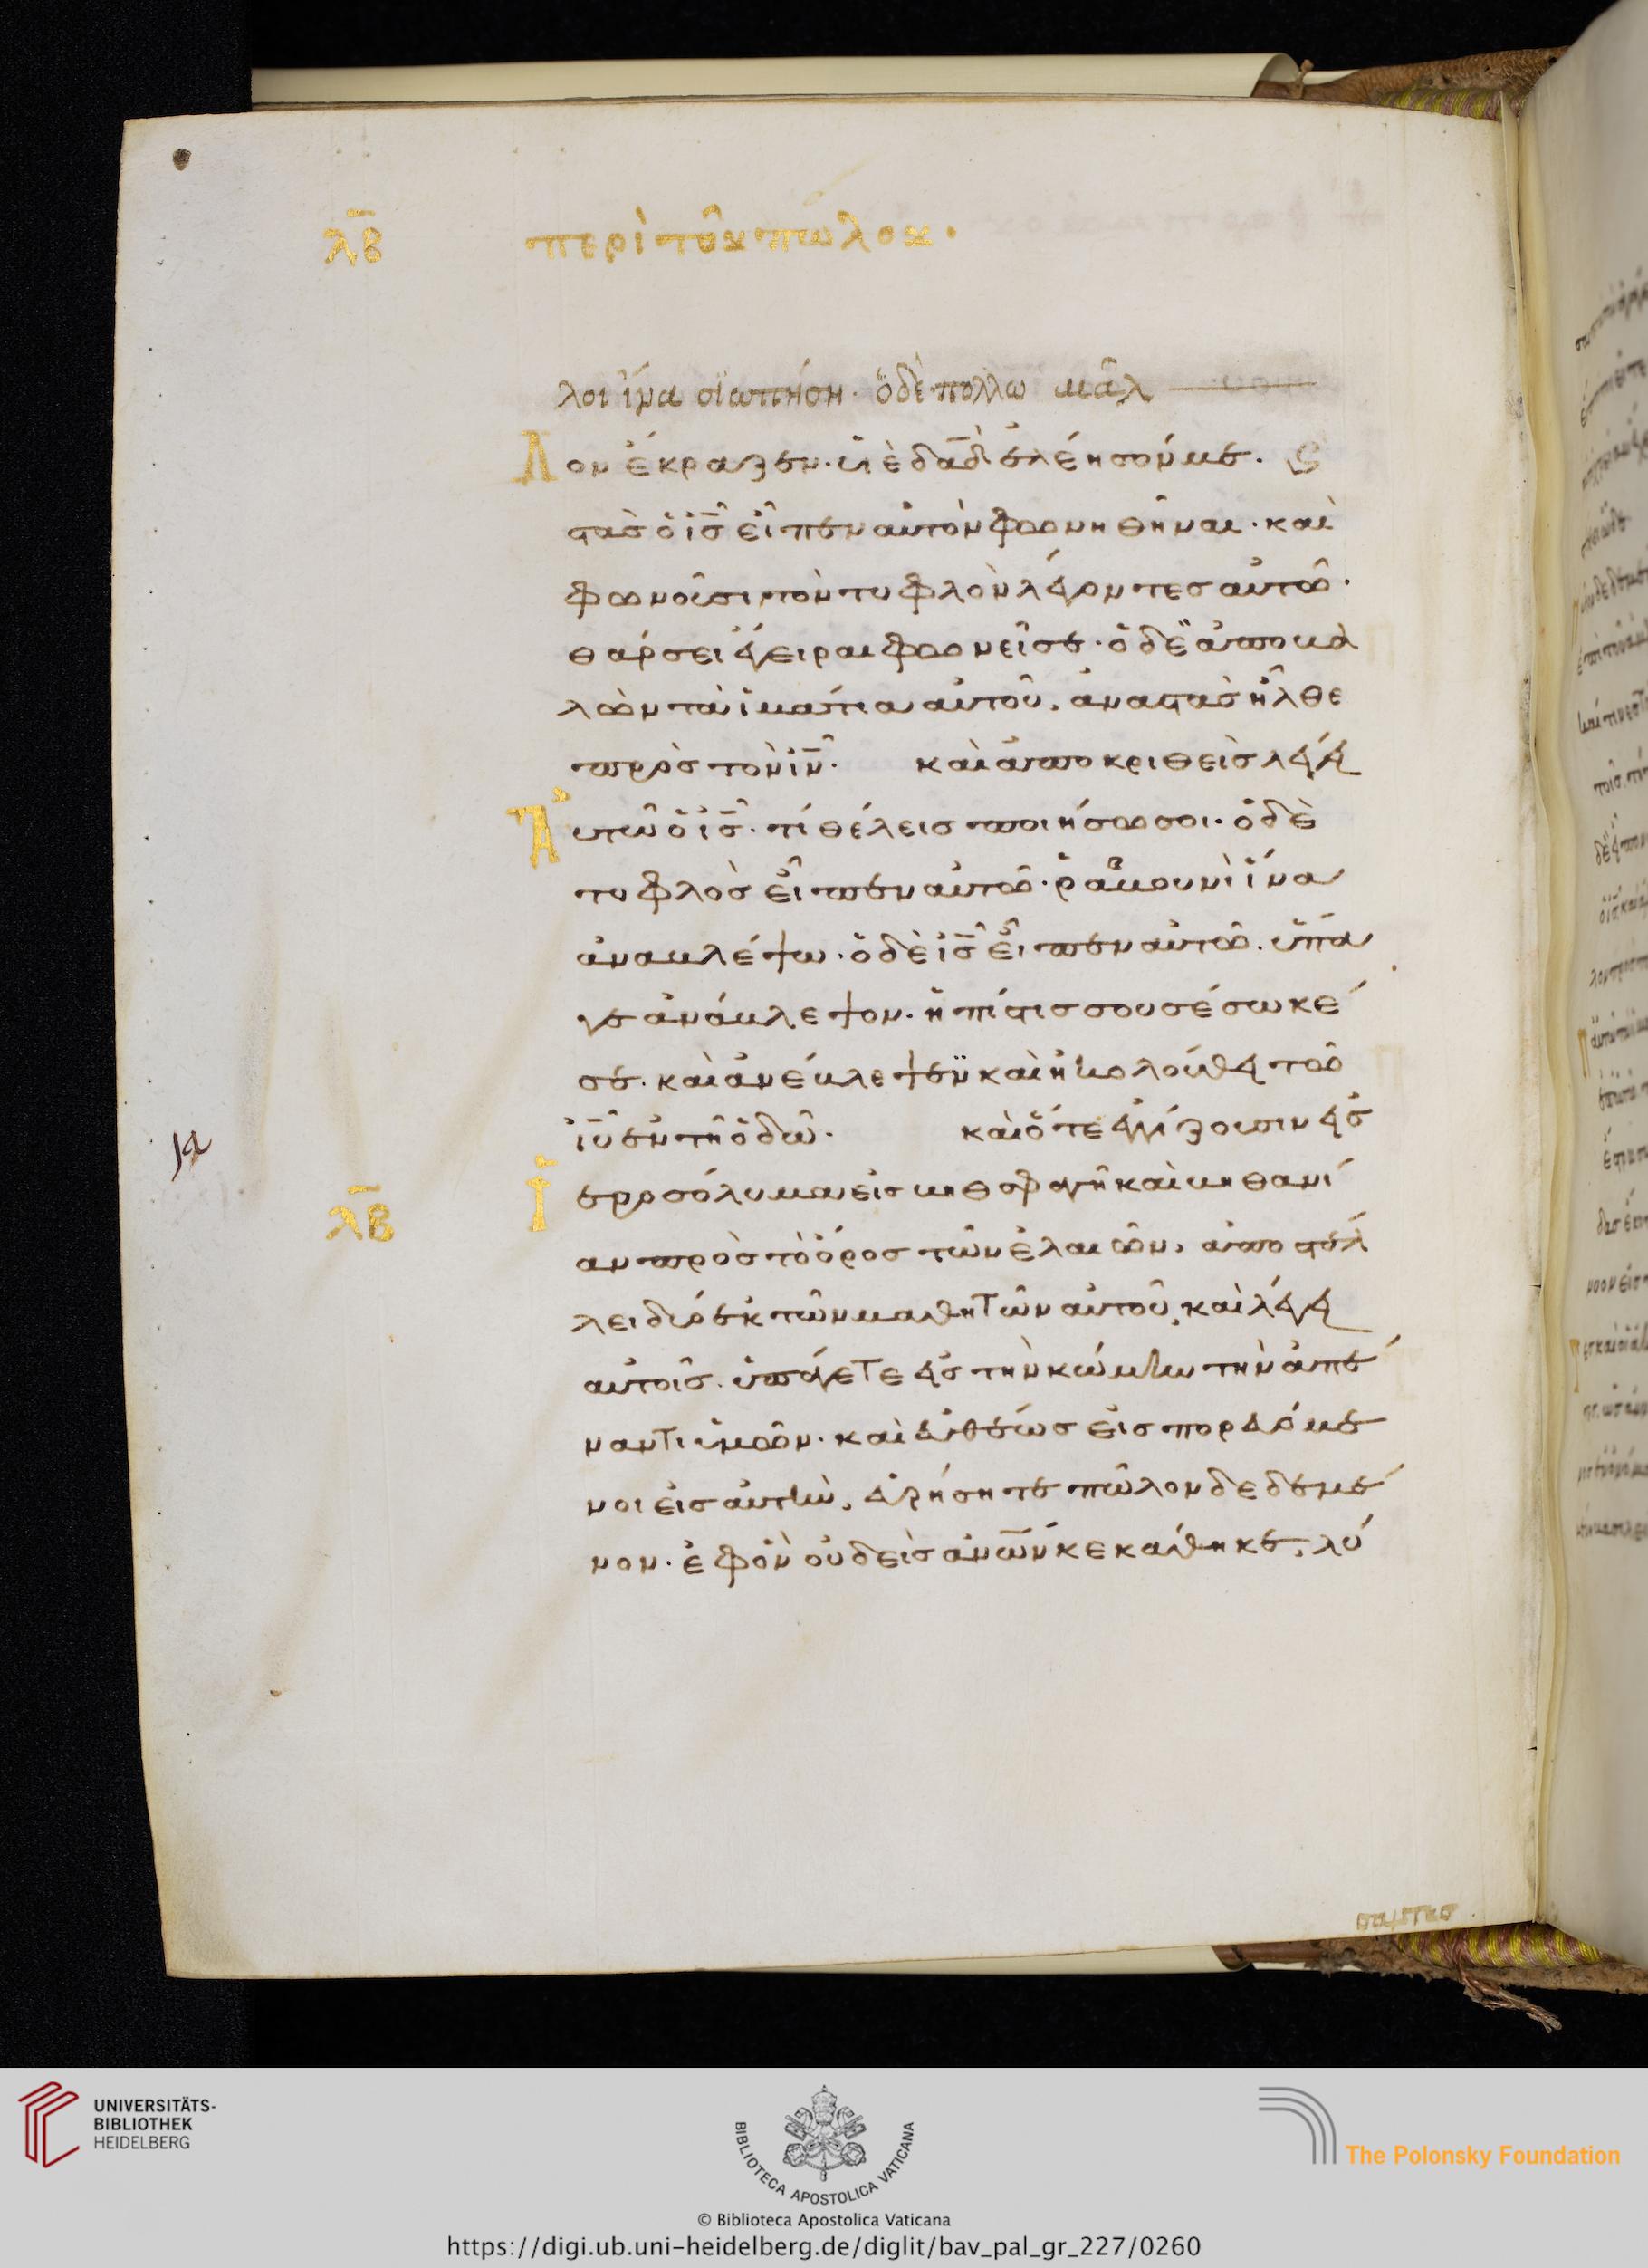 λβ περὶ τοῦ πώλου·
λοι ἵνα σϊωπήση· ὁ δὲ πολλω μᾶλ
Λον ἔκραζεν· υἱὲ δαδ ἐλέησόν με· ς
τὰς ὁ ις εἶπεν αὐτὸν φωνηθῆναι· καὶ
φωνοῦσι τὸν τυφλὸν λέγοντες αὐτῶ·
θάρσει ἔγειραι φωνεῖ σε· ὁ δὲ ἀποβα
λὼν τὰ ἱμάτια αὐτοῦ, ἀναστὰς ἦλθε
πρὸς τὸν ιν· καὶ ἀποκριθεὶς λέγει
Αὐτῶ ὁ ις· τί θέλεις ποιήσω σοι· ὁ δὲ
τυφλὸς εἶπεν αὐτῶ· ῥαβουνὶ ἵνα
ἀναβλέψω· ὁ δὲ ις εἶπεν αὐτῶ· ὕπα
γε ἀνάβλεψον· ἡ πίστις σου σέσωκέ
σε· καὶ ἀνέβλεψεν καὶ ἠκολούθει τῶ
ιυ ἐν τῆ ὁδῶ· καὶ ὅτε ἐγγίζουσιν εἰς
λβ Ἱεροσόλυμα εἰς βηθσφαγῆ καὶ βηθανί
αν πρὸς τὸ ὄρος τῶν ἐλαιῶν, ἀποστέλ
λει δύο ἐκ τῶν μαθητῶν αὐτοῦ, καὶ λέγει
αὐτοῖς· ὑπάγετε εἰς τὴν κώμην τὴν ἀπέ
ναντι ὑμῶν· καὶ εὐθέως εἰσπορευόμε
νοι εἰς αὐτὴν, εὑρήσητε πῶλον δεδεμέ
νον· ἐφ ὃν οὐδεὶς ανων κεκάθηκε, λύ
UNIVERSITÄTS-
BIBLIOTHEK
HEIDELBERG
BIBLIOTECA APOSTOLICA VATICANA
The Polonsky Foundation
© Biblioteca Apostolica Vaticana
https://digi.ub.uni-heidelberg.de/diglit/bav_pal_gr_227/0260